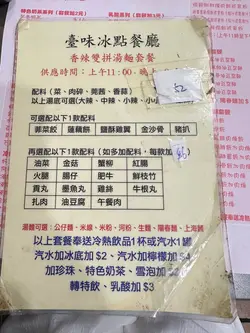 臺味冰點餐廳
香辣雙拼湯麵套餐
供應時間：上午11:00-晚上
配料（菜、肉碎、菀茜、香蒜）
以上湯底可選（大辣、中辣、小辣、
52
可選選配以下1款配料
韭菜餃 蓮藕餅 鹽酥雞翼 金沙骨 豬扒
再選配以下1款配料（如多加配料，每款加
油菜 金菇 蟹柳 紅腸
火腿 腸仔 肥牛 鮮枝竹
貢丸 墨魚丸 雞絲 牛根丸
扎肉 油豆腐 午餐肉
湯麵可選：公仔麵、米線、米粉、河粉、生麵、陽春麵、上海麵
以上套餐奉送冷熱飲品1杯或汽水1罐
汽水加冰底加 $2、汽水加檸檬加 $4
加珍珠、特色奶茶、雪泡加 $2
轉特飲、乳酸加 $3